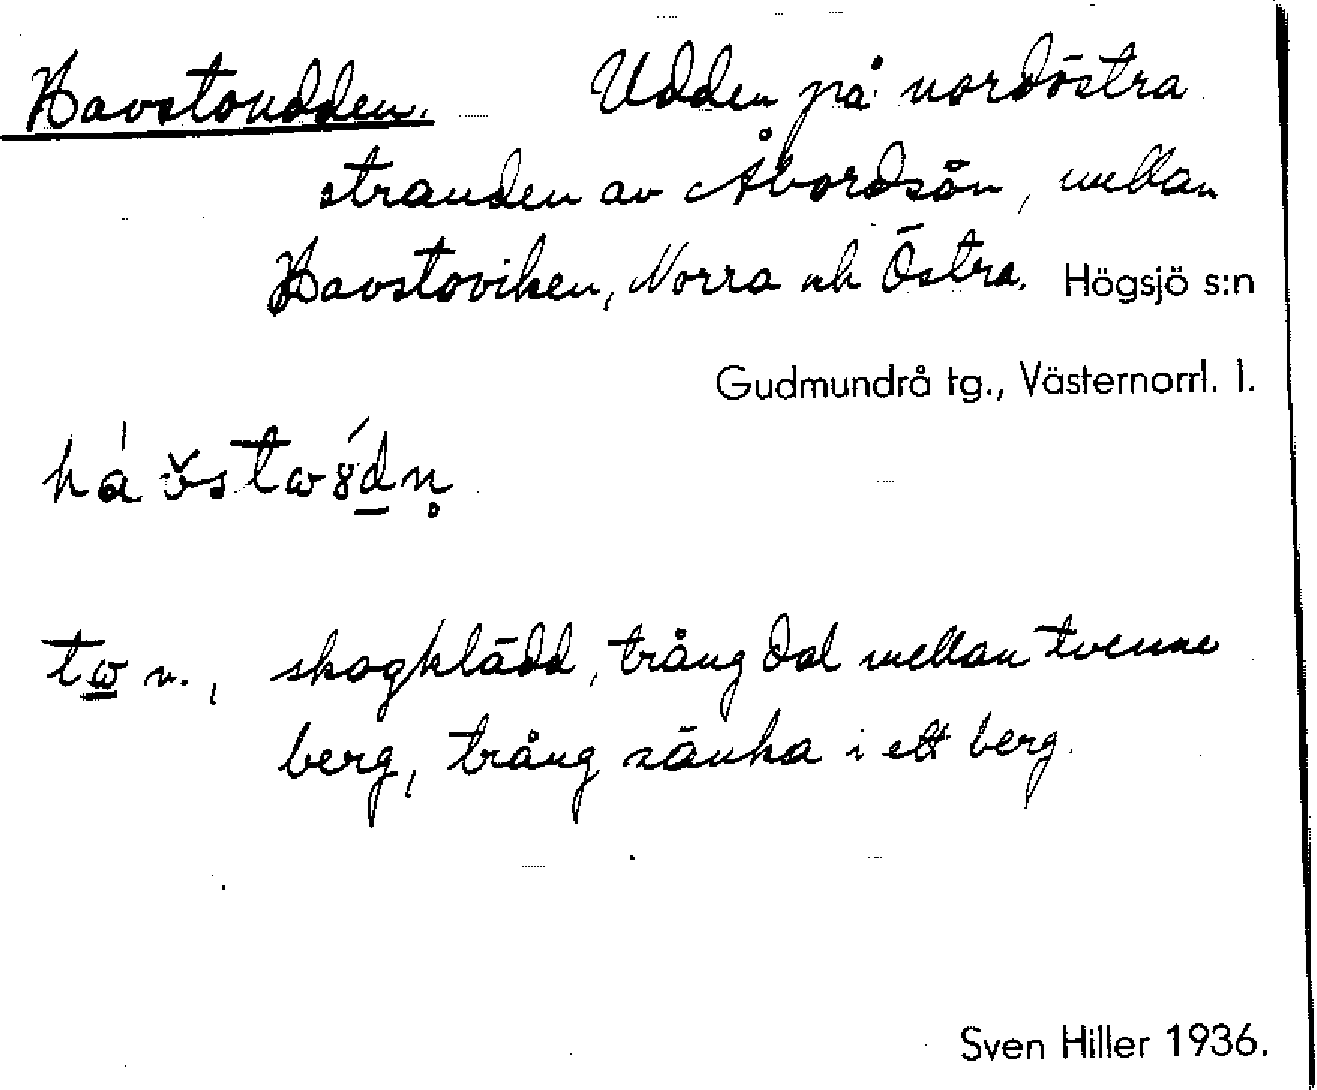 Havstoudden. Udden på nordöstra
stranden av Åbordsön, mellan
Havstoviken, Norra och Östra. Högsjö s:n
Gudmundrå tg., Västernorrl. l.
n., skogklädd, trång dal mellan tvenne
berg, trång sänka i ett berg.
Sven Hiller 1936.